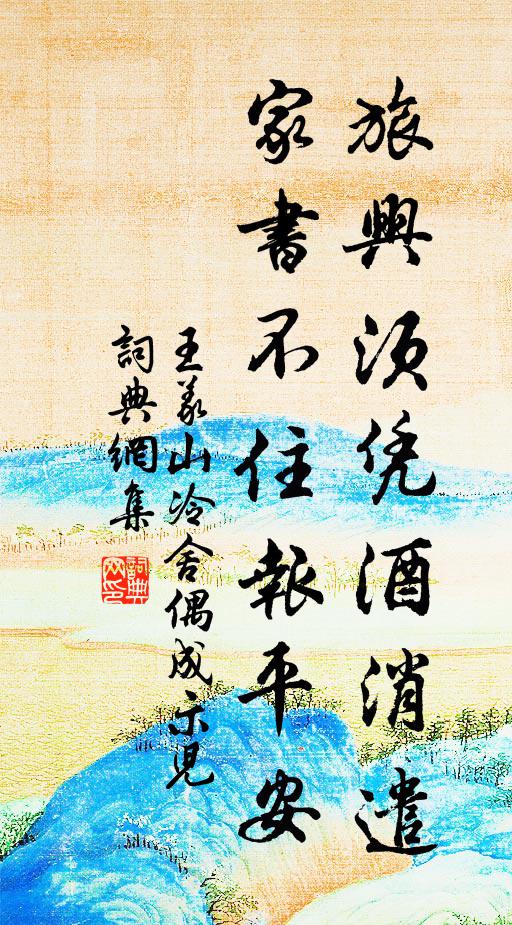 旅興須凭酒消遣
家書不住報平安
王義山冷舍偶成示兒
詞典網集
詞典
网印